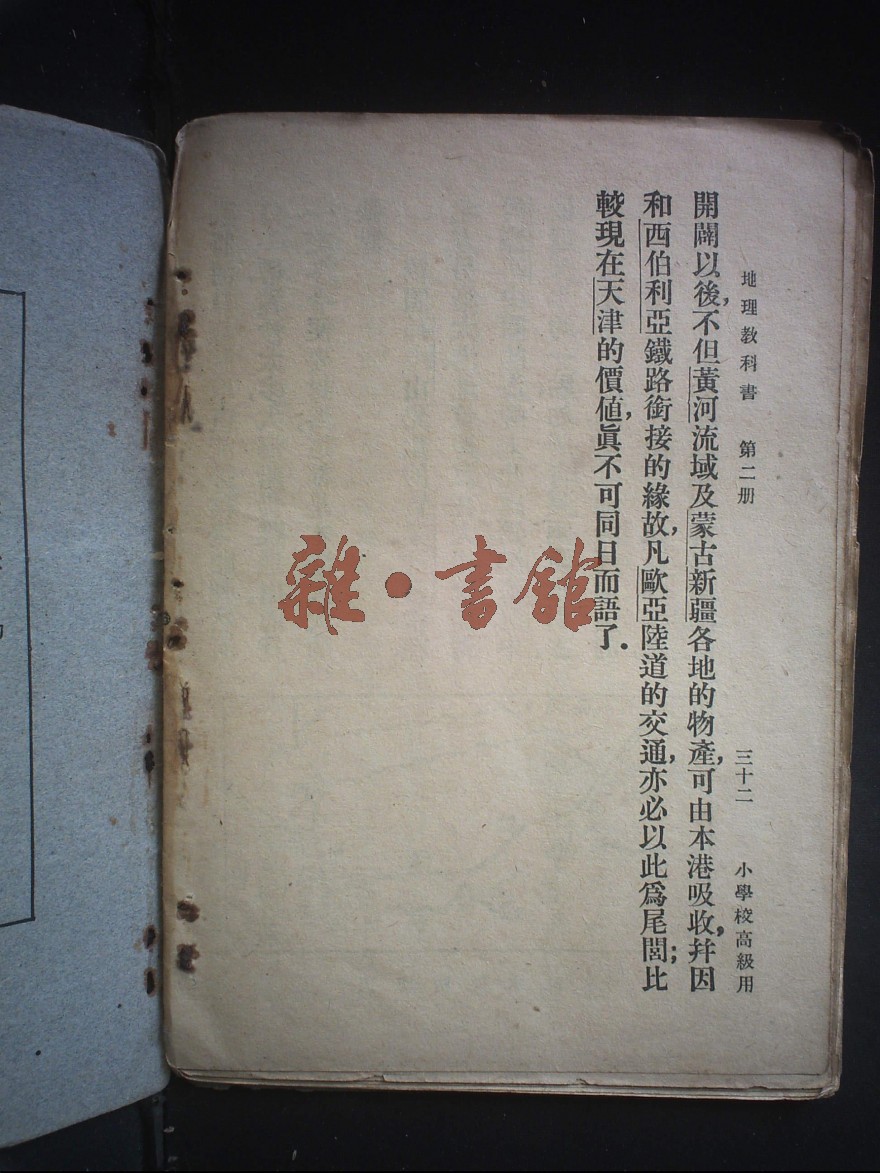 地理敎科書 第二册 三十二 小學校高級用
開闢以後,不但黃河流域及蒙古新疆各地的物產,可由本港吸收,幷因
和西伯利亞鐵路銜接的緣故,凡歐亞陸道的交通,亦必以此爲尾閭;比
較現在天津的價値,眞不可同日而語了.
雜·書館